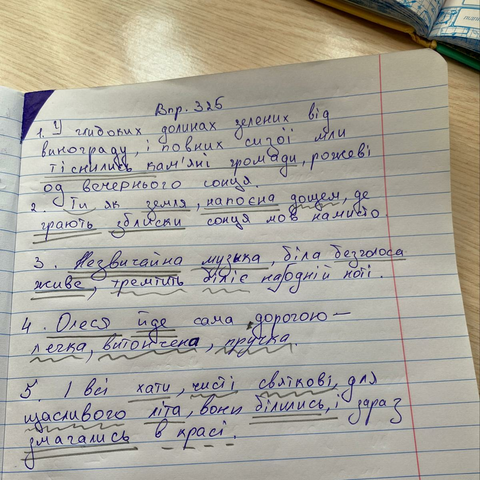 Впр. 325
1. У глибоких долинах зелених від
винограду, і повних сизої мли
тіснились кам'яні громади, рожеві
од вечернього сонця.
2. Ти як земля, напоєна дощем, де
грають зблиски сонця мов намисто
3. Незвичайна музыка, біла безголоса
живе, тремтить біліє на одній ноті.
4. Олеся йде сама дорогою –
легка, витончена, пручка.
5. І всі хати, чисті святкові, для
щасливого літа, вони білились, і зараз
змагались в красі.